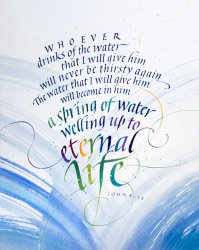 WHOEVER
drinks of the water
that I will give him
will never be thirsty again
The water that I will give him
will become in him
a spring of water
welling up to
eternal
life
JOHN 4:14